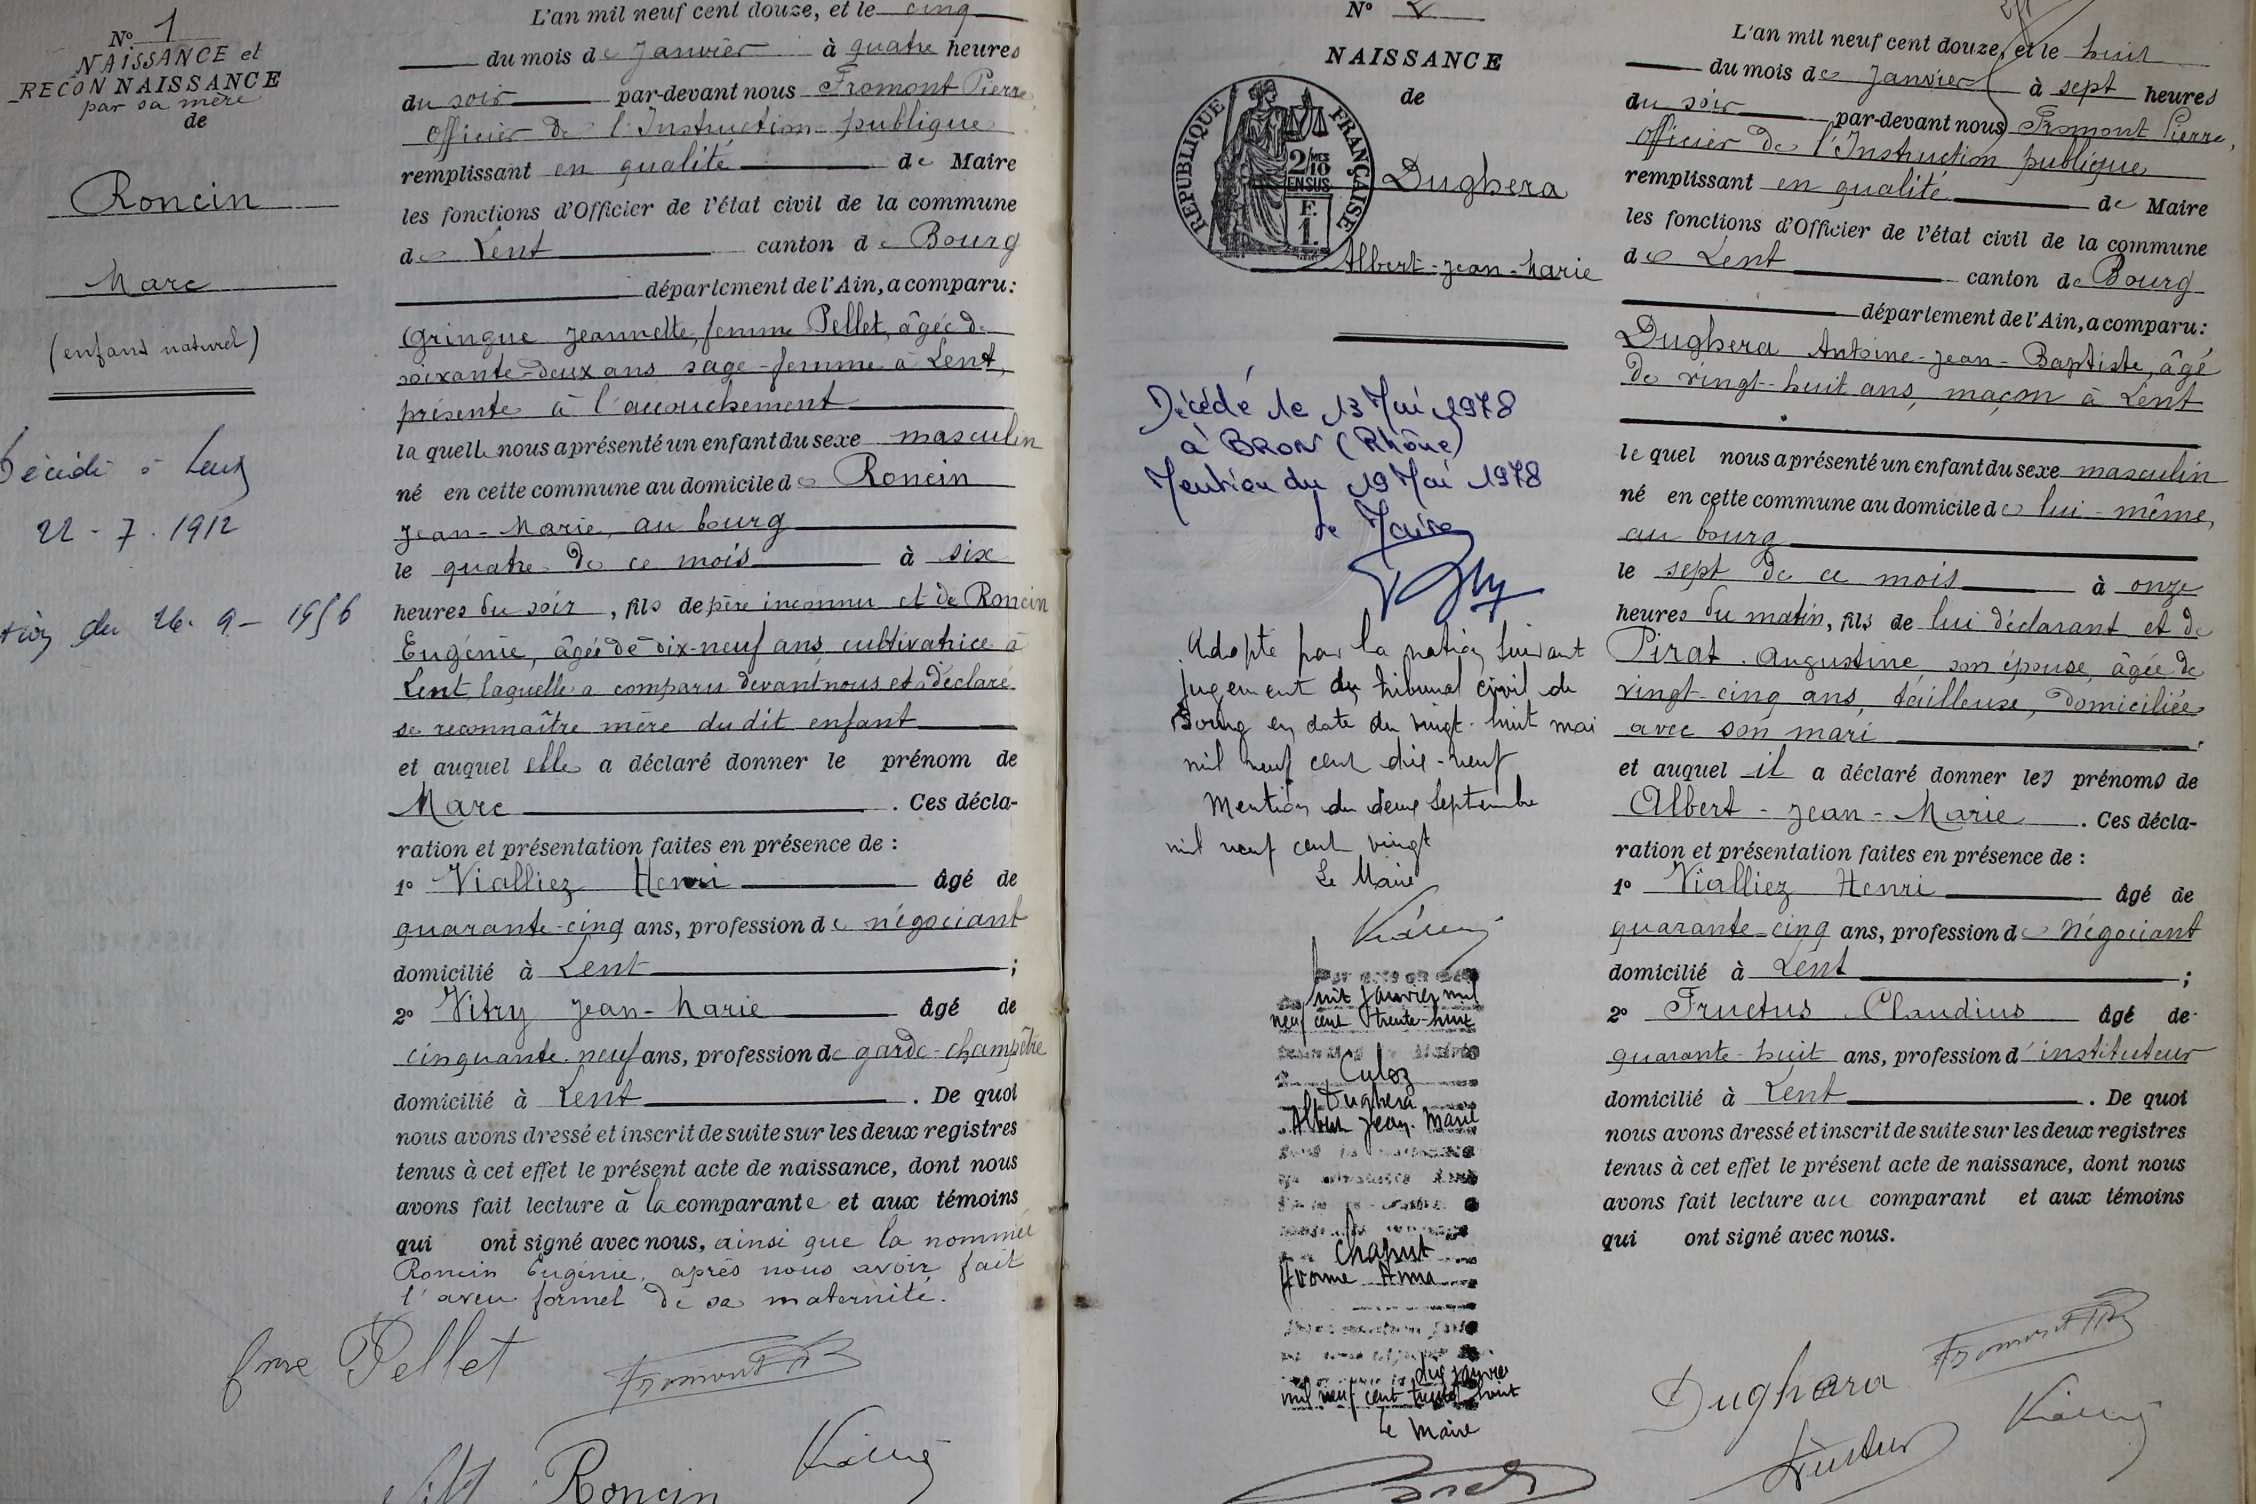 N° 1
NAISSANCE et
RECONNAISSANCE
par sa mère
de
Roncin
Marc
(enfant naturel)
Décédé à Lent
22 - 7 - 1912
du 26 - 9 - 1956
L'an mil neuf cent douze, et le cinq
du mois de Janvier à quatre heures
du soir par-devant nous Fromont Pierre,
Officier de l'Instruction publique
remplissant en qualité de Maire
les fonctions d'Officier de l'état civil de la commune
de Lent canton de Bourg
département de l'Ain, a comparu:
Gringue Jeannette, femme Pellet, âgée de
soixante-deux ans sage-femme à Lent,
présente à l'accouchement
la quelle nous a présenté un enfant du sexe masculin
né en cette commune au domicile de Roncin
Jean-Marie, au bourg
le quatre de ce mois à six
heures du soir, fils de père inconnu et de Roncin
Eugénie, âgée de dix-neuf ans, cultivatrice à
Lent, laquelle a comparu devant nous et a déclaré
se reconnaître mère du dit enfant
et auquel elle a déclaré donner le prénom de
Marc. Ces décla-
ration et présentation faites en présence de :
1° Vialliez Henri âgé de
quarante-cinq ans, profession de négociant
domicilié à Lent ;
2° Vitry Jean-Marie âgé de
cinquante-neuf ans, profession de garde-champêtre
domicilié à Lent. De quoi
nous avons dressé et inscrit de suite sur les deux registres
tenus à cet effet le présent acte de naissance, dont nous
avons fait lecture à la comparante et aux témoins
qui ont signé avec nous, ainsi que la nommée
Roncin Eugénie, après nous avoir fait
l'aveu formel de sa maternité.
fme Pellet
Fromont
Roncin
N° 2
NAISSANCE
de
RÉPUBLIQUE FRANÇAISE
2/10 MES
EN SUS
F.
1.
Dughera
Albert-Jean-Marie
Décédé le 13 Mai 1978
à BRON (Rhône)
Mention du 19 Mai 1978
le Maire
Adopté par la nation suivant
jugement du tribunal civil de
Bourg en date du vingt-huit mai
mil neuf cent dix-neuf
Mention du deux Septembre
mil neuf cent vingt
Le Maire
huit janvier mil
neuf cent trente-huit
Culoz
Dughera
Albert Jean-Marie
Chapust
Yvonne Anna
dix janvier
mil neuf cent trente-huit
Le Maire
L'an mil neuf cent douze, et le huit
du mois de Janvier à sept heures
du soir par-devant nous Fromont Pierre,
Officier de l'Instruction publique
remplissant en qualité de Maire
les fonctions d'Officier de l'état civil de la commune
de Lent canton de Bourg
département de l'Ain, a comparu:
Dughera Antoine-Jean-Baptiste, âgé
de vingt-huit ans, maçon à Lent
le quel nous a présenté un enfant du sexe masculin
né en cette commune au domicile de lui-même,
au bourg
le sept de ce mois à onze
heures du matin, fils de lui déclarant et de
Pirat Augustine, son épouse, âgée de
vingt-cinq ans, tailleuse, domiciliée
avec son mari.
et auquel il a déclaré donner les prénoms de
Albert-Jean-Marie. Ces décla-
ration et présentation faites en présence de :
1° Vialliez Henri âgé de
quarante-cinq ans, profession de négociant
domicilié à Lent ;
2° Fructus Claudius âgé de
quarante-huit ans, profession d'instituteur
domicilié à Lent. De quoi
nous avons dressé et inscrit de suite sur les deux registres
tenus à cet effet le présent acte de naissance, dont nous
avons fait lecture au comparant et aux témoins
qui ont signé avec nous.
Dughera
Fromont
Fructus